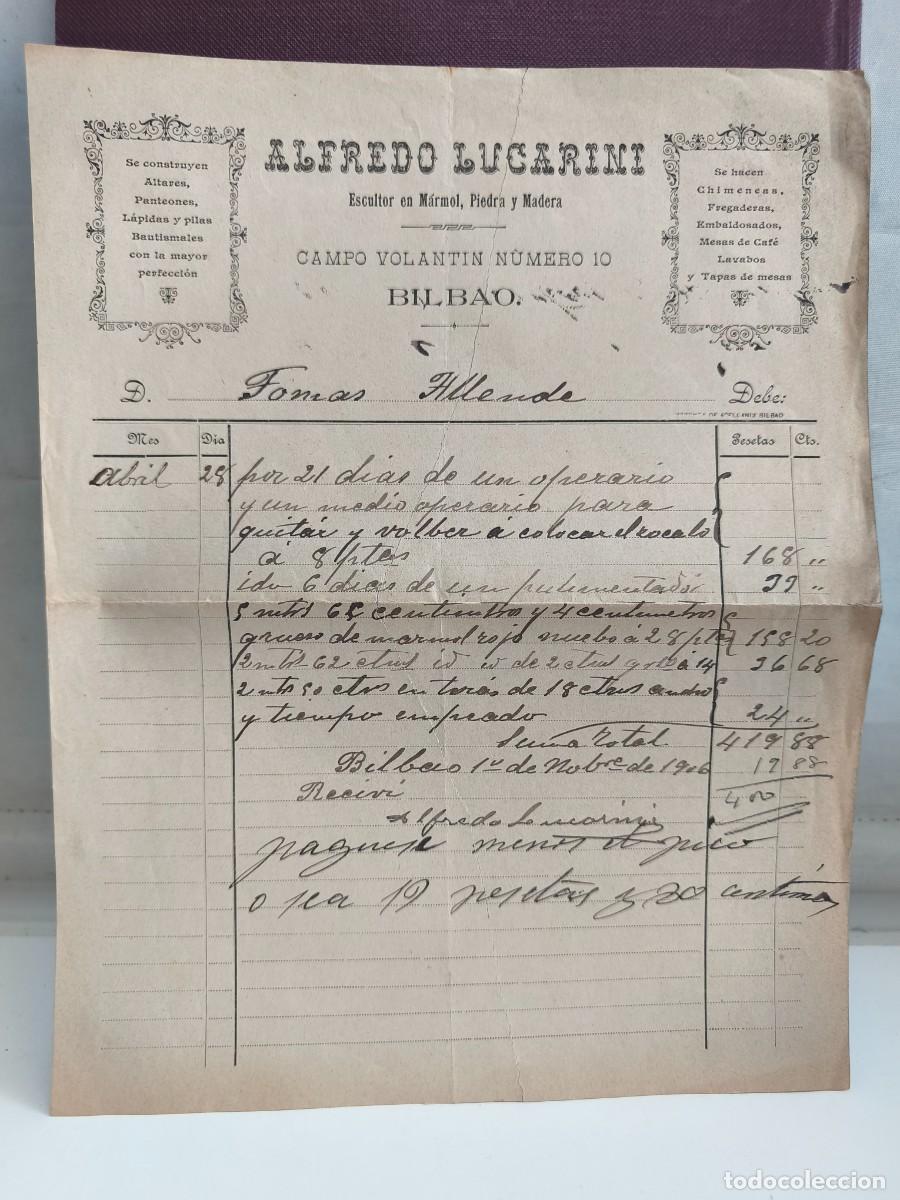 Se construyen
Altares,
Panteones,
Lápidas y pilas
Bautismales
con la mayor
perfección
ALFREDO LUCARINI
Escultor en Mármol, Piedra y Madera
CAMPO VOLANTIN NÙMERO 10
BILBAO.
Se hacen
Chimeneas,
Fregaderas,
Embaldosados,
Mesas de Café
Lavabos
y Tapas de mesas
D. Tomas Allende Debe:
DE BILBAO
Mes Dia Pesetas Cts.
abril 28 por 21 dias de un operario
y un medio operario para
quitár y volber á colocar el zocalo
á 8 ptas 168 „
ido 6 dias de un pulimentador „
5 mtrs 65 centimtros y 4 centimetros
grueso de marmol rojo nuebo á 28 ptas 158 20
2 mtrs 62 ctms id id de 2 ctms á 14 36 68
2 mts 50 ctms en de 18 ctms ancho
y tiempo empleado 24 „
Suma total 419 88
Bilbao 1º de Nobre de 1906 88
Recivi 400
Alfredo Lucarini
paguese menos el pico
o sea 19 pesetas y centimos
todocoleccion